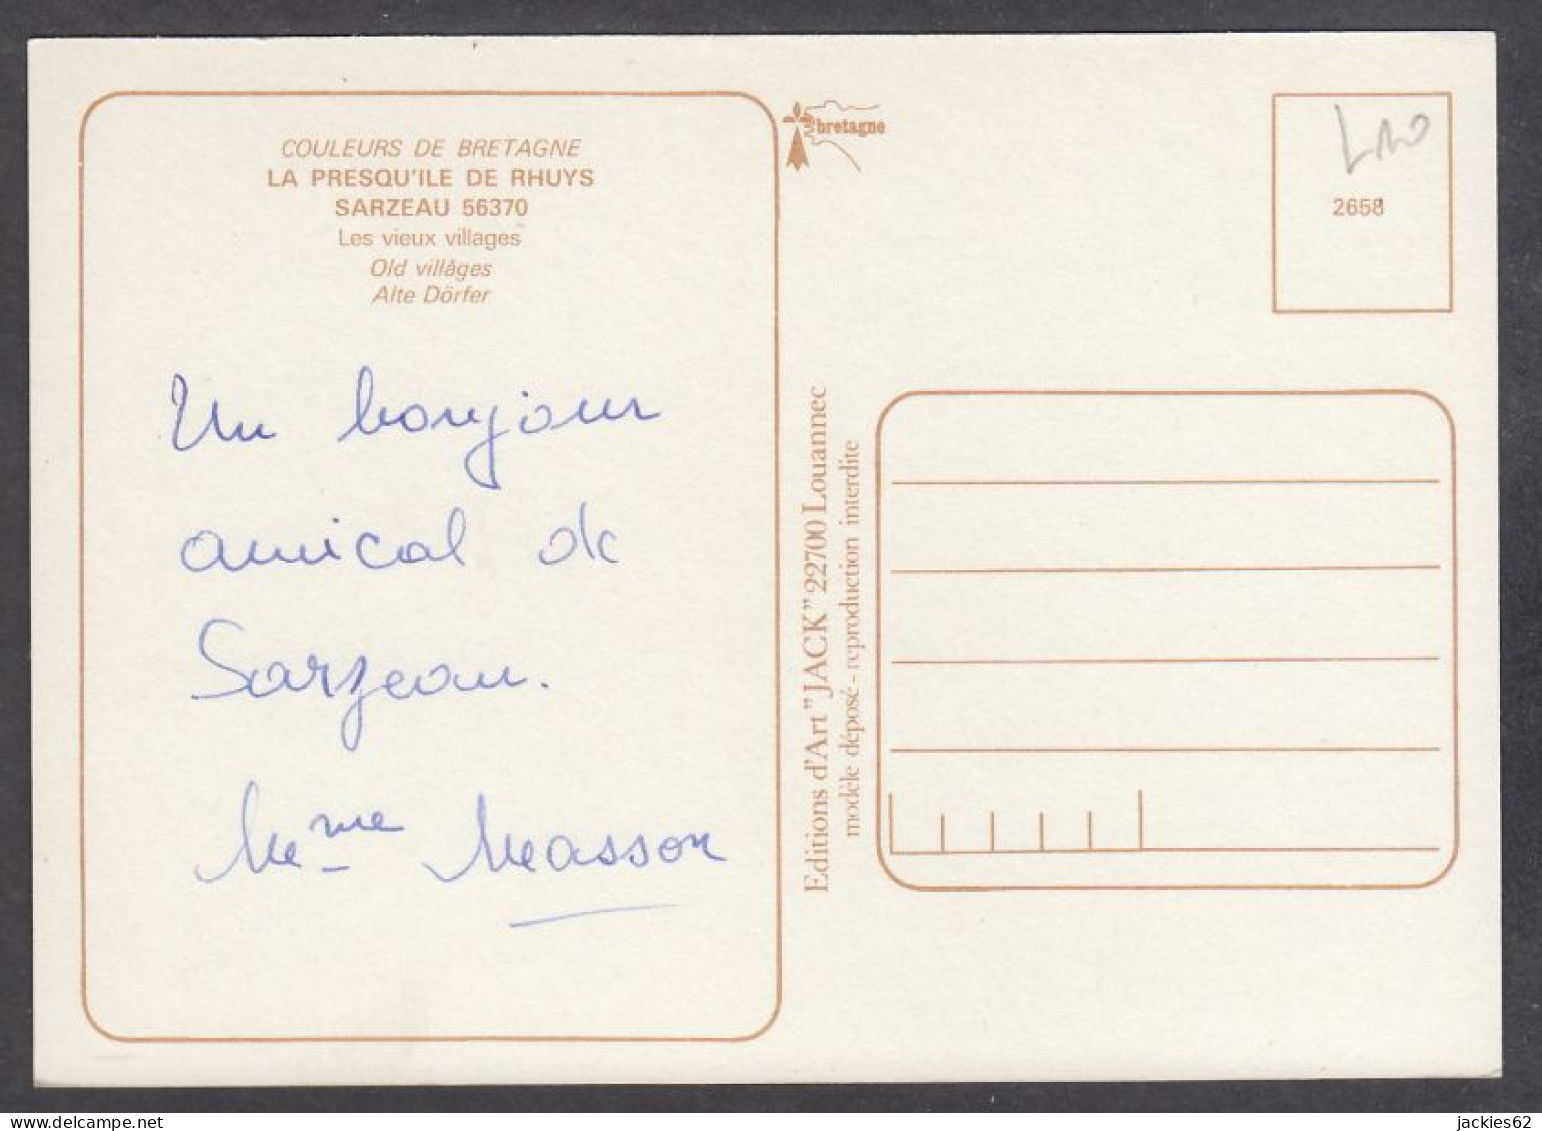 COULEURS DE BRETAGNE
LA PRESQU'ILE DE RHUYS
SARZEAU 56370
Les vieux villages
Old villages
Alte Dörfer
Un bonjour
amical de
Sarzeau.
Mme Masson
bretagne
2658
Editions d'Art "JACK" 22700 Louannec
modèle déposé - reproduction interdite
jackies62